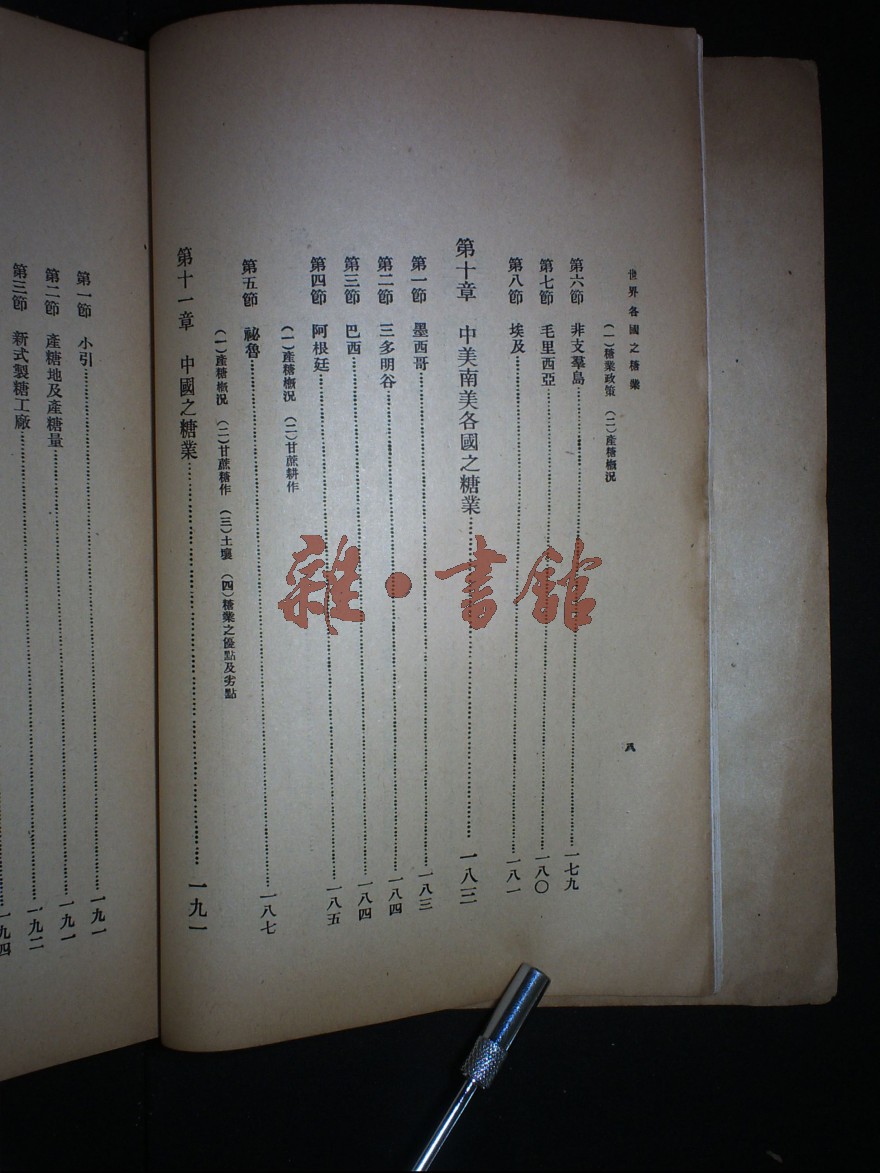 世界各國之糖業
(一)糖業政策 (二)產糖概況
第六節 非支羣島 一七九
第七節 毛里西亞 一八〇
第八節 埃及 一八一
第十章 中美南美各國之糖業 一八三
第一節 墨西哥 一八三
第二節 三多明谷 一八四
第三節 巴西 一八四
第四節 阿根廷 一八五
(一)產糖概況 (二)甘蔗耕作
第五節 祕魯 一八七
(一)產糖概況 (二)甘蔗糖作 (三)土壤 (四)糖業之優點及劣點
第十一章 中國之糖業 一九一
八
第一節 小引 一九一
第二節 產糖地及產糖量 一九一
第三節 新式製糖工廠 一九二
一九四
雜·書館